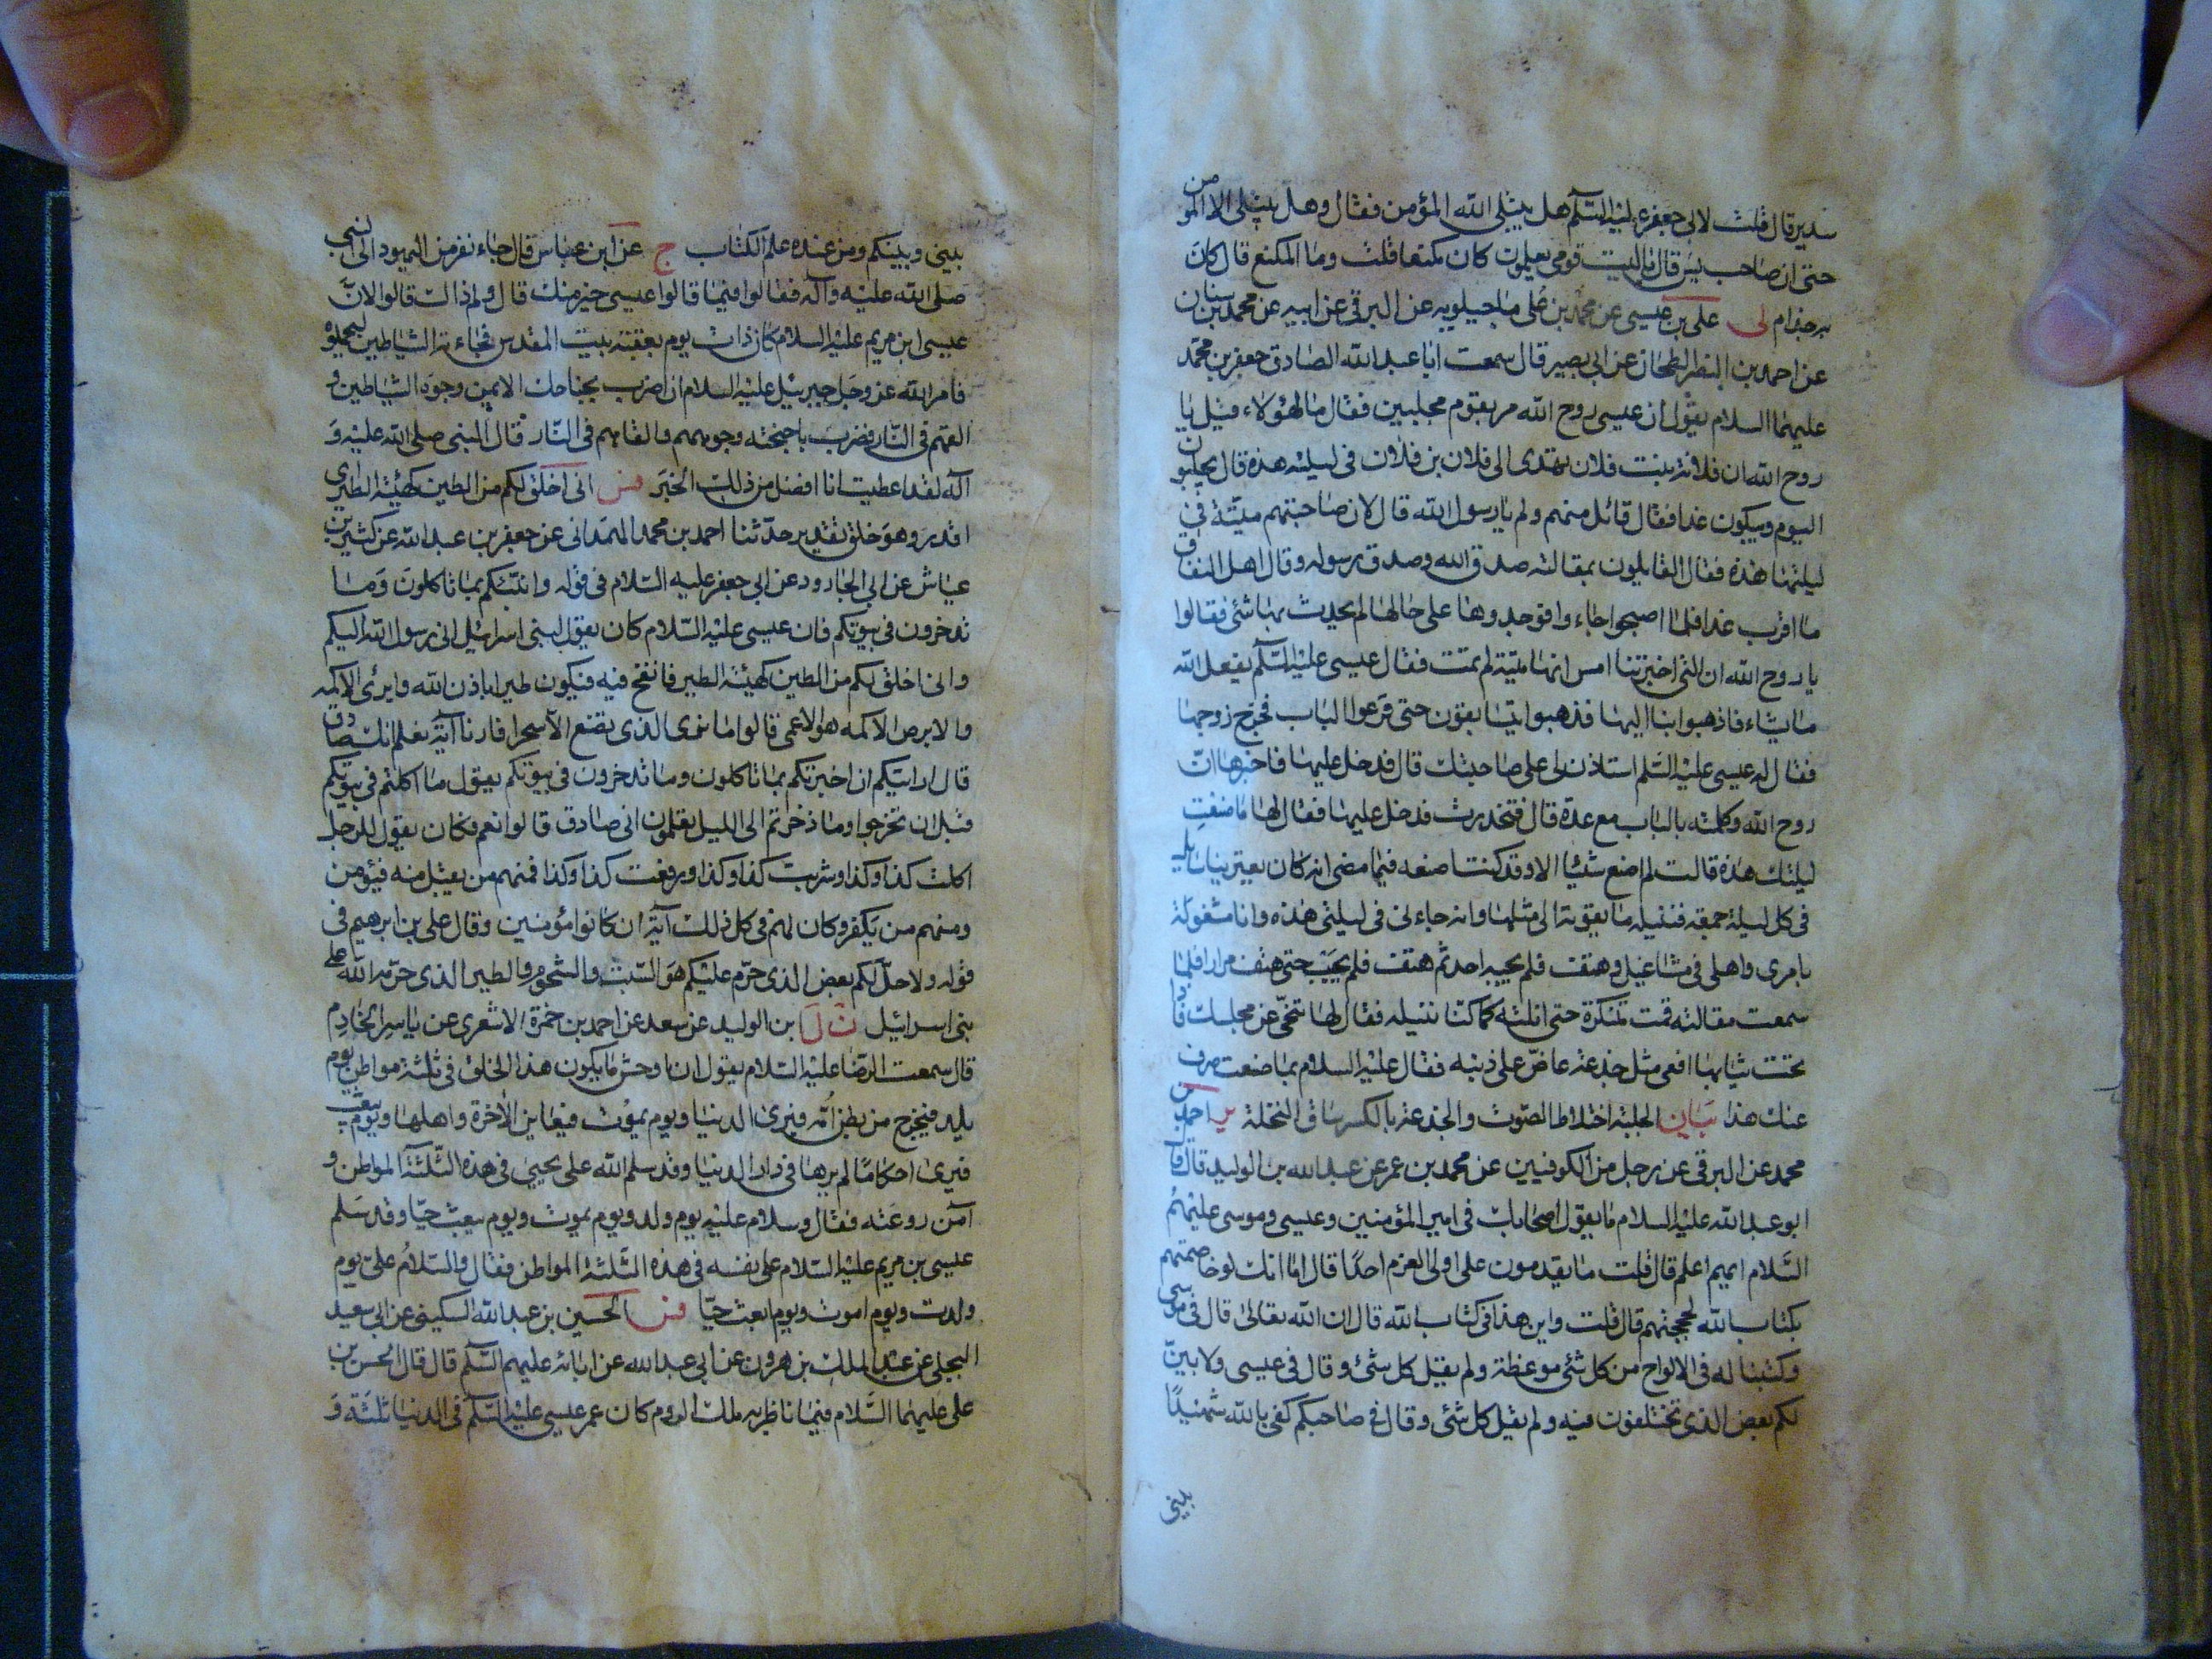 سدير قال قلت لابى جعفر عليه السلم هل يبتلى الله المؤمن فقال وهل يبتلى الا المؤمن
حتى ان صاحب يس قال يا ليت قومى يعلمون كان مكنعا قلت وما المكنع قال كان
به جذام لى على بن عيسى عن محمد بن على ماجيلويه عن البرقى عن ابيه عن محمد بن سنان
عن احمد بن النضر الطحان عن ابى بصير قال سمعت ابا عبد الله الصادق جعفر بن محمد
عليهما السلام يقول ان عيسى روح الله مر بقوم مجلبين فقال ما لهؤلاء قيل يا
روح الله ان فلانة بنت فلان تهدى الى فلان بن فلان فى ليلته هذه قال يجلبون
اليوم ويبكون غدا فقال قائل منهم ولم يا رسول الله قال لان صاحبتهم ميتة فى
ليلتها هذه فقال القايلون بمقالته صدق الله وصدق رسوله وقال اهل النفاق
ما اقرب غدا فلما اصبحوا جاءوا فوجدوها على حالها لم يحدث بها شئ فقالوا
يا روح الله ان التى اخبرتنا امس انها ميتة لم تمت فقال عيسى عليه السلم يفعل الله
ما يشاء فاذهبوا بنا اليها فذهبوا يتسابقون حتى قرعوا الباب فخرج زوجها
فقال له عيسى عليه السلم استاذن لى على صاحبتك قال فدخل عليها فاخبرها ان
روح الله وكلمته بالباب مع عدة قال فتخدرت فدخل عليها فقال لها ما صنعت
ليلتك هذه قالت لم اصنع شيئا الا وقد كنت اصنعه فيما مضى انه كان يعترينا سايل
فى كل ليلة جمعة فننيله ما يقوته الى مثلها وانه جاءنى فى ليلتى هذه وانا مشغولة
بامرى واهلى فى مشاغيل فهتف فلم يجبه احد ثم هتف فلم يجب حتى هتف مرارا فلما
سمعت مقالته قمت متنكرة حتى انلته كما كنا ننيله فقال لها تنحى عن مجلسك فاذا
تحت ثيابها افعى مثل جذعة عاض على ذنبه فقال عليه السلام بما صنعت صرف
عنك هذا بيان الجلبة اختلاط الصوت والجذعة بالكسر ساق النخلة ير احمد بن
محمد عن البرقى عن رجل من الكوفيين عن محمد بن عمر عن عبد الله بن الوليد قال قال
ابو عبد الله عليه السلام ما يقول اصحابك فى امير المؤمنين وعيسى وموسى عليهم
السلام ايهم اعلم قال قلت ما يقدمون على اولى العزم احدا قال اما انك لو خاصمتهم
بكتاب الله لحججتهم قال قلت واين هذا فى كتاب الله قال ان الله تعالى قال فى موسى
وكتبنا له فى الالواح من كل شئ موعظة ولم يقل كل شئ وقال فى عيسى ولابين
لكم بعض الذى تختلفون فيه ولم يقل كل شئ وقال فى صاحبكم كفى بالله شهيدا
بينى
بينى وبينكم ومن عنده علم الكتاب ج عن ابن عباس قال جاء نفر من اليهود الى النبى
صلى الله عليه وآله فقالوا فيما قالوا عيسى خير منك قال ولم ذاك قالوا لان
عيسى ابن مريم عليه السلام كان ذات يوم بعقبة بيت المقدس فجاءته الشياطين ليحملوه
فامر الله عز وجل جبرئيل عليه السلام ان اضرب بجناحك الايمن وجوه الشياطين و
القهم فى النار فضرب باجنحته وجوههم والقاهم فى النار قال النبى صلى الله عليه و
آله لقد اعطيت انا افضل من ذلك الخبر فس انى اخلق لكم من الطين كهيئة الطير اى
اقدر وهو خلق تقدير حدثنا احمد بن محمد الهمدانى عن جعفر بن عبد الله عن كثير بن
عياش عن ابى الجارود عن ابى جعفر عليه السلام فى قوله وانبئكم بما تاكلون وما
تدخرون فى بيوتكم فان عيسى عليه السلام كان يقول لبنى اسرائيل انى رسول الله اليكم
وانى اخلق لكم من الطين كهيئة الطير فانفخ فيه فيكون طيرا باذن الله وابرئ الاكمه
والابرص الاكمه هو الاعمى قالوا ما نرى الذى تصنع الا سحرا فارنا آية نعلم انك صادق
قال ارايتكم ان اخبرتكم بما تاكلون وما تدخرون فى بيوتكم يقول ما اكلتم فى بيوتكم
قبل ان تخرجوا وما ذخرتم الى الليل تعلمون انى صادق قالوا نعم فكان يقول للرجل
اكلت كذا وكذا وشربت كذا وكذا ورفعت كذا وكذا فمنهم من يقبل منه فيؤمن
ومنهم من يكفر وكان لهم فى كل ذلك آية ان كانوا مؤمنين وقال على بن ابرهيم فى
قوله ولاحل لكم بعض الذى حرم عليكم هو السبت والشحوم والطير الذى حرمه الله على
بنى اسرائيل ن ل بن الوليد عن سعد عن احمد بن حمزة الاشعرى عن ياسر الخادم
قال سمعت الرضا عليه السلام يقول ان اوحش ما يكون هذا الخلق فى ثلثة مواطن يوم
يلد فيخرج من بطن امه فيرى الدنيا ويوم يموت فيعاين الاخرة واهلها ويوم يبعث
فيرى احكاما لم يرها فى دار الدنيا وقد سلم الله على يحيى فى هذه الثلثة المواطن و
آمن روعته فقال وسلام عليه يوم ولد ويوم يموت ويوم يبعث حيا وقد سلم
عيسى بن مريم عليه السلام على نفسه فى هذه الثلثة المواطن فقال والسلام على يوم
ولدت ويوم اموت ويوم ابعث حيا فس الحسين بن عبد الله السكينى عن ابى سعيد
البجلى عن عبد الملك بن هرون عن ابى عبد الله عن ابائه عليهم السلم قال قال الحسن بن
على عليهما السلام فيما ناظر به ملك الروم كان عمر عيسى عليه السلم فى الدنيا ثلثة و